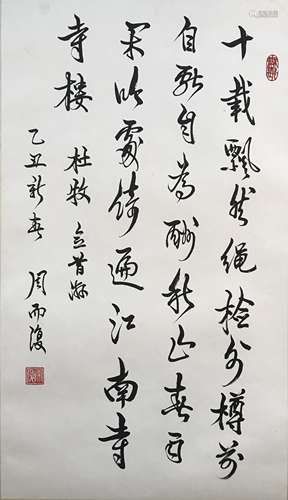 十載飄然繩檢外樽前
自獻自為酬秋山春雨
閑吟處倚遍江南寺
寺樓 杜牧 念昔游
乙丑新春 周而復